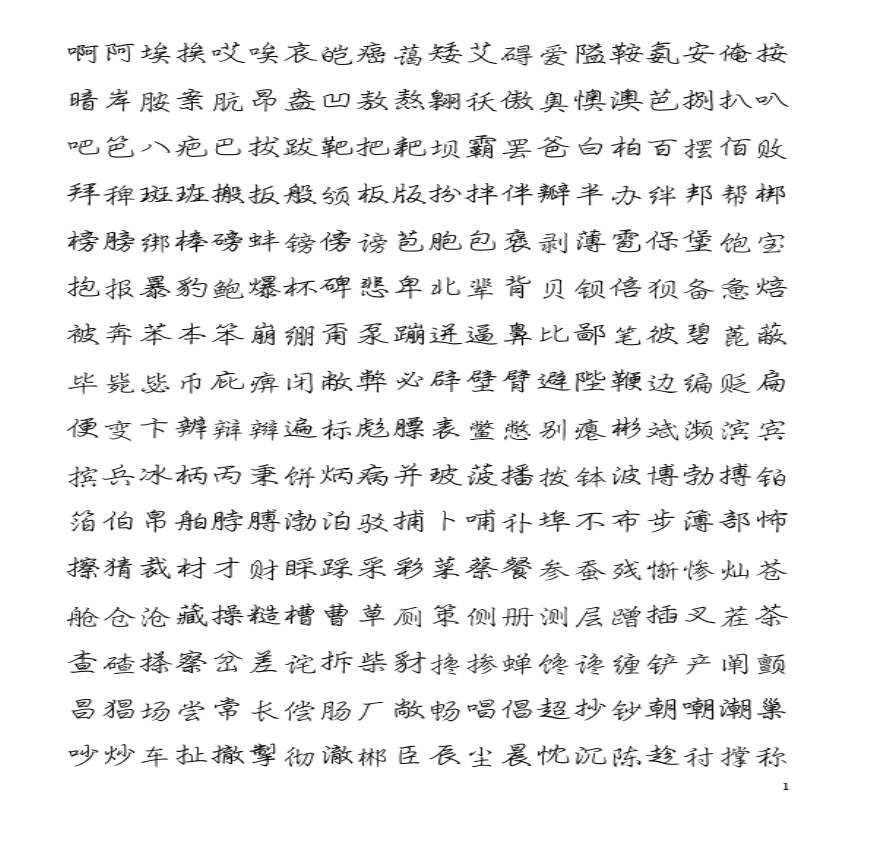 啊阿埃挨哎唉哀皑癌蔼矮艾碍爱隘鞍氨安俺按
暗岸胺案肮昂盎凹敖熬翱袄傲奥懊澳芭捌扒叭
吧笆八疤巴拔跋靶把耙坝霸罢爸白柏百摆佰败
拜稗斑班搬扳般颁板版扮拌伴瓣半办绊邦帮梆
榜膀绑棒磅蚌镑傍谤苞胞包褒剥薄雹保堡饱宝
抱报暴豹鲍爆杯碑悲卑北辈背贝钡倍狈备惫焙
被奔苯本笨崩绷甭泵蹦迸逼鼻比鄙笔彼碧蓖蔽
毕毙毖币庇痹闭敝弊必辟壁臂避陛鞭边编贬扁
便变卞辨辩辫遍标彪膘表鳖憋别瘪彬斌濒滨宾
摈兵冰柄丙秉饼炳病并玻菠播拨钵波博勃搏铂
箔伯帛舶脖膊渤泊驳捕卜哺补埠不布步簿部怖
擦猜裁材才财睬踩采彩菜蔡餐参蚕残惭惨灿苍
舱仓沧藏操糙槽曹草厕策侧册测层蹭插叉茬茶
查碴搽察岔差诧拆柴豺搀掺蝉馋谗缠铲产阐颤
昌猖场尝常长偿肠厂敞畅唱倡超抄钞朝嘲潮巢
吵炒车扯撤掣彻澈郴臣辰尘晨忱沉陈趁衬撑称
1